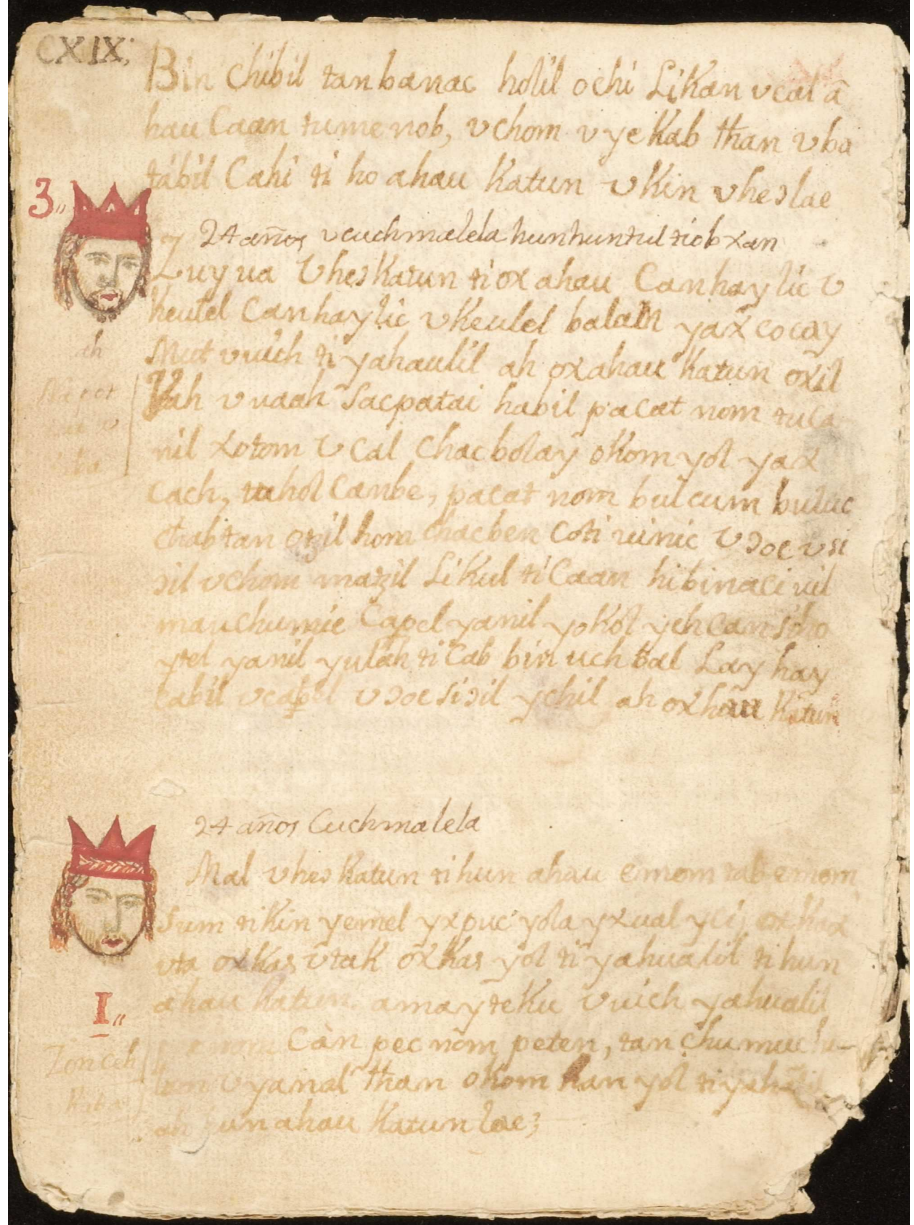 CXIX,
Bin Chibil tanbanac holil ochi Likan vcal a
hau Caan tumenob, vchom vyekab than vba
tabil Cahi ti ho ahau Katun vkin vheɔlae
3,,
24 años vcuchmalela hunhuntul tiob xan
Zuyua Vheɔ Katun ti ox ahau Canhaylic v
keulel Canhaylic vkeulel balam yax cocay
Mut vuich ti yahaulil ah oxahau Katun oxil
ah
Vah vuaah Sacpatai habil pacat nom tula
nil xotom vCal Chacbolay okom yol yax
cach, tahol Canbe, pacat nom bulcum buluc
chabtan oxil hom Chacben Coti uinic vɔoc vsi
ɔil vchom mazil Likul ti Caan hibinaci uil
mauchumie Capel yanil yokol yeh Can
ytel yanil yulah ti Cab bin uchbal Lay hay
Cabil vcapel vɔoc siɔil ychil ah ox hau Katun
24 años Cuchmalela
Mal vheɔ Katun ti hun ahau emom tab emom
Sum ti Kin yemel yxpuc yola yxual
vta oxkas vtak oxkas yol ti yahualil ti hun
ahau Katun amayteku vuich yahualil
1,,
nom Càn pec nom peten, tan chumuc
Zonceh
vyanal than okom kan yol ti
ah hun ahau Katun lae;